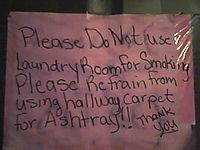 Please Do Not Use
Laundry Room for Smoking
Please Retrain from
using hallway carpet
for Ashtray!! Thank
you